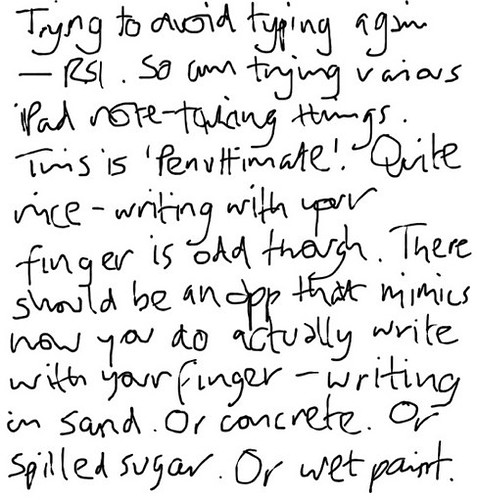 Trying to avoid typing again
– RSI. So am trying various
iPad note-taking things.
This is 'Penultimate'. Quite
nice – writing with your
finger is odd though. There
should be an app that mimics
how you do actually write
with your finger – writing
in sand. Or concrete. Or
spilled sugar. Or wet paint.